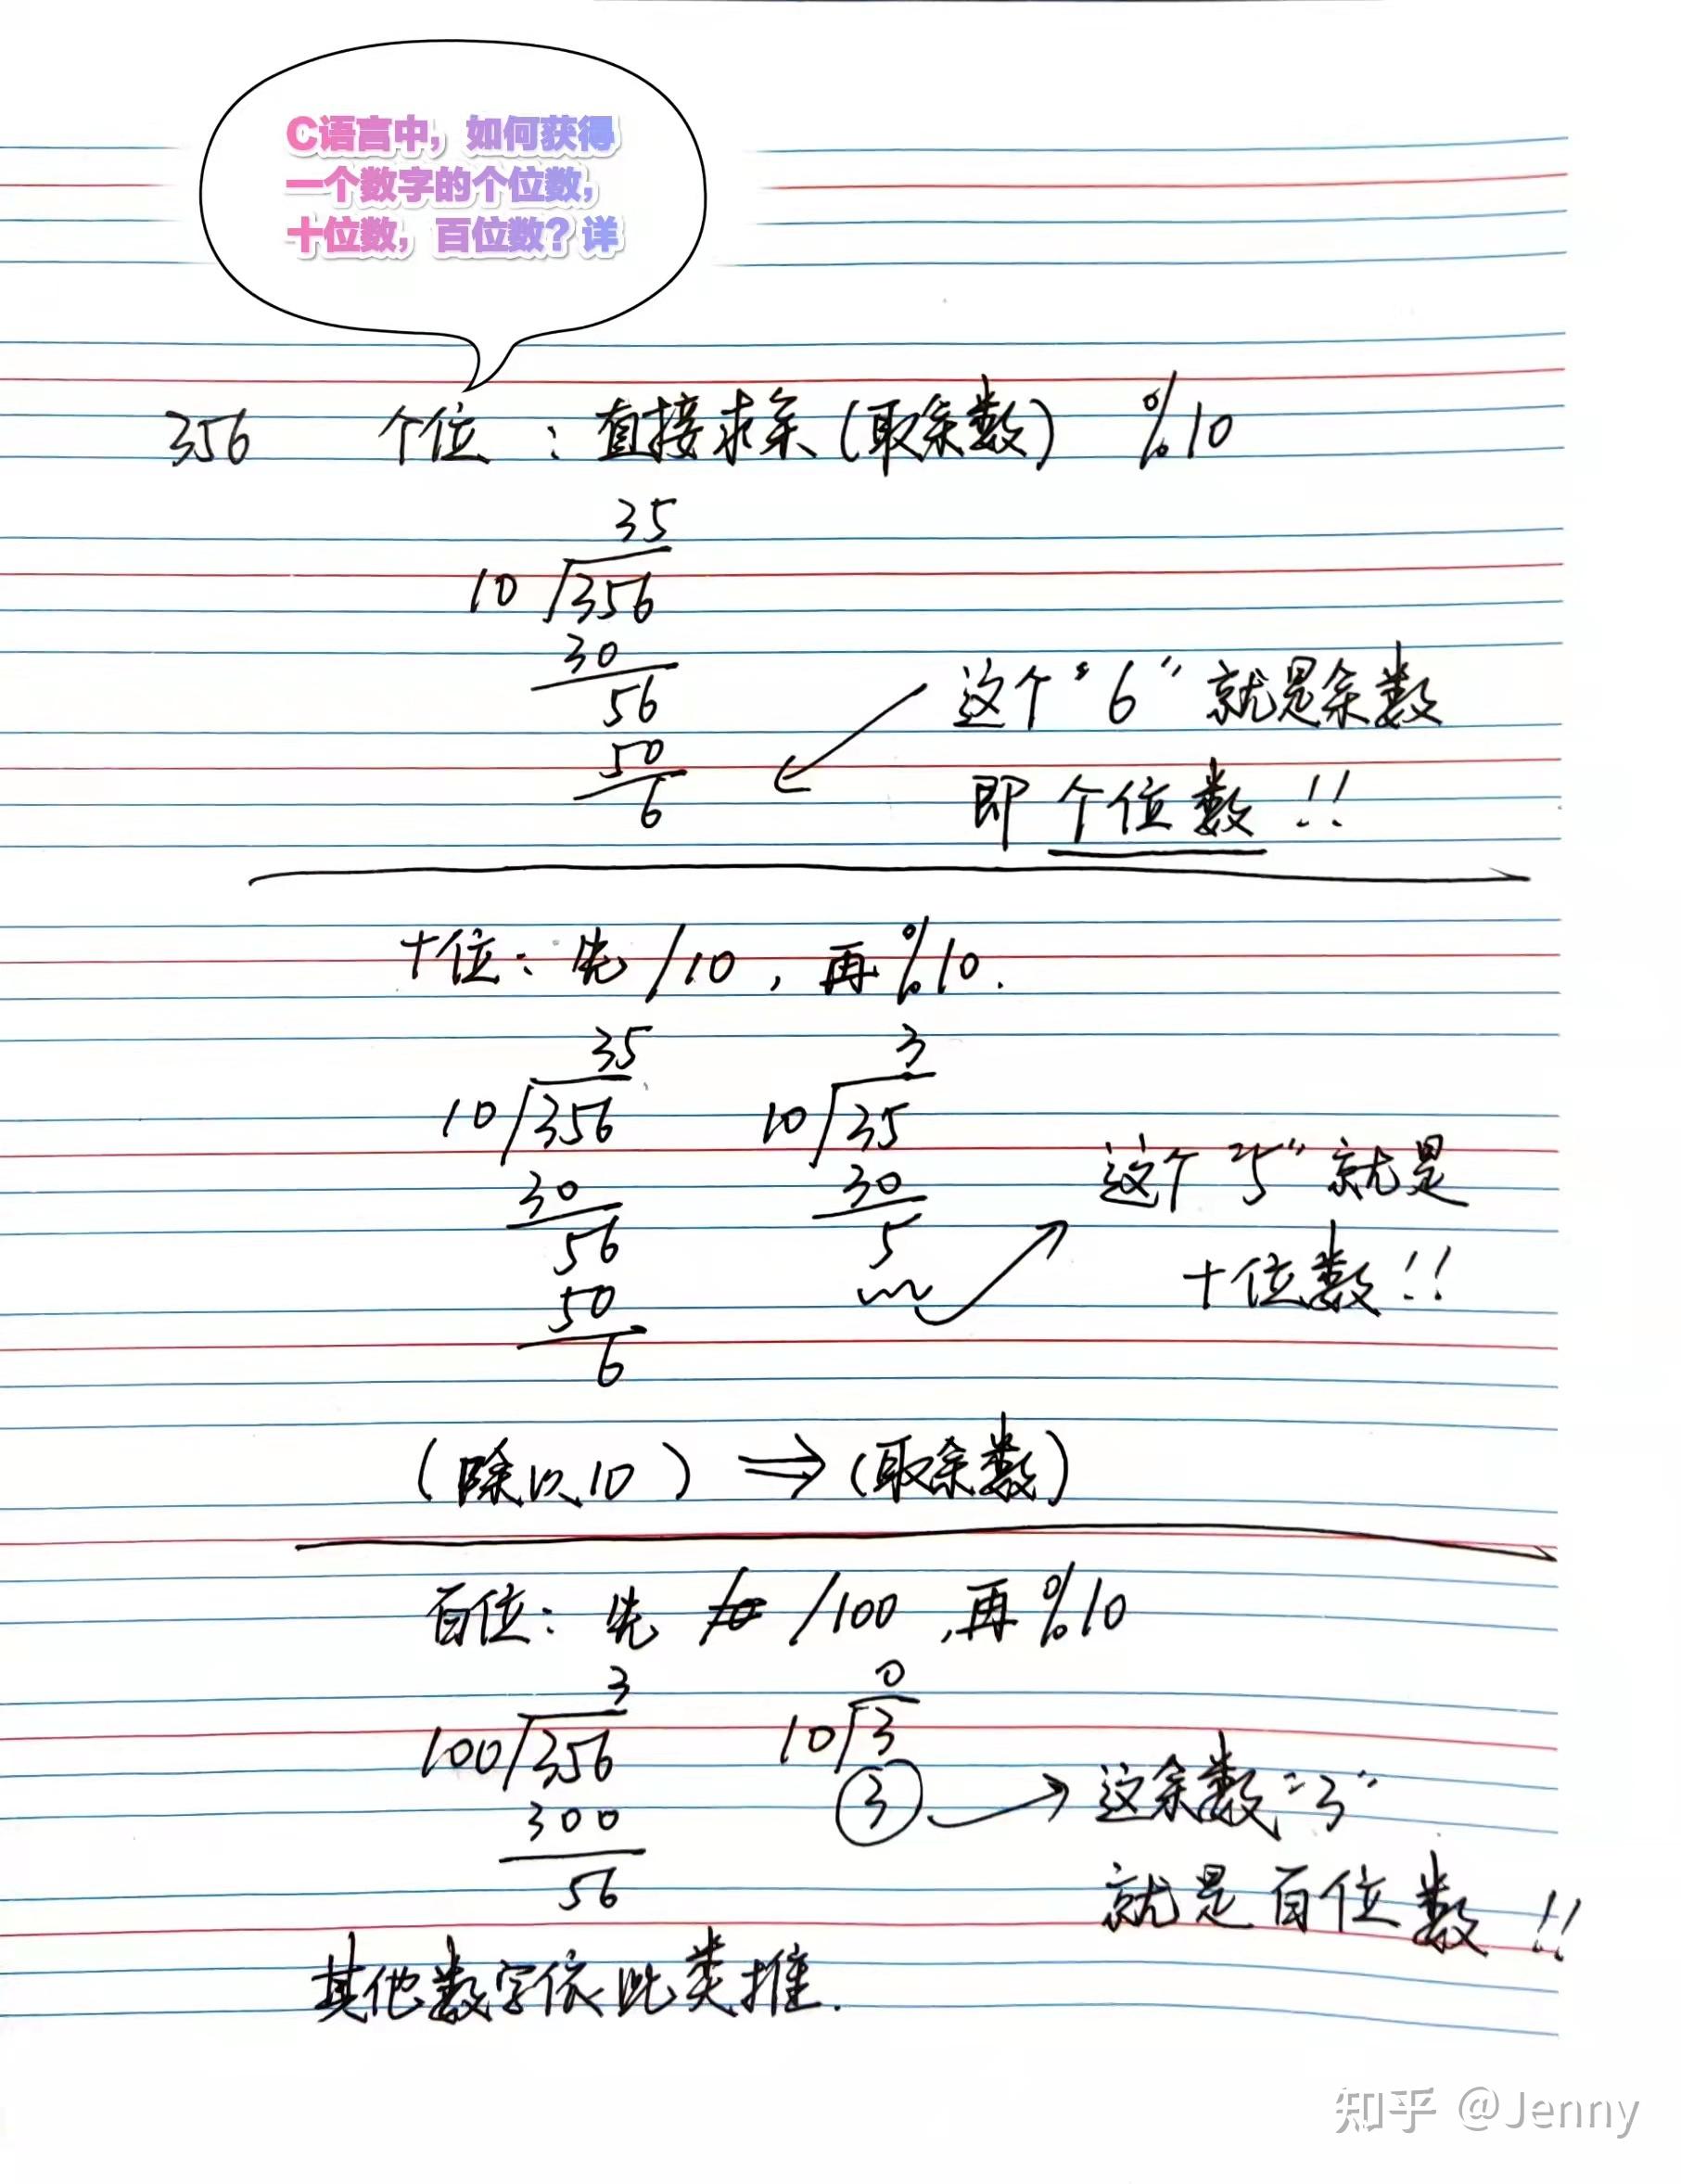 C语言中，如何获得
一个数字的个位数，
十位数，百位数？详
356 个位：直接求余（取余数） %10
35
10 356
30
56
50
6
这个“6”就是余数
即个位数！！
十位：先/10，再%10.
35
10 356
30
56
50
6
3
10 35
30
5
这个“5”就是
十位数！！
（除以10）⇒（取余数）
百位：先 /100，再%10
3
100 356
300
56
0
10 3
3
这余数“3”
就是百位数！！
其他数字依此类推.
知乎 @Jenny